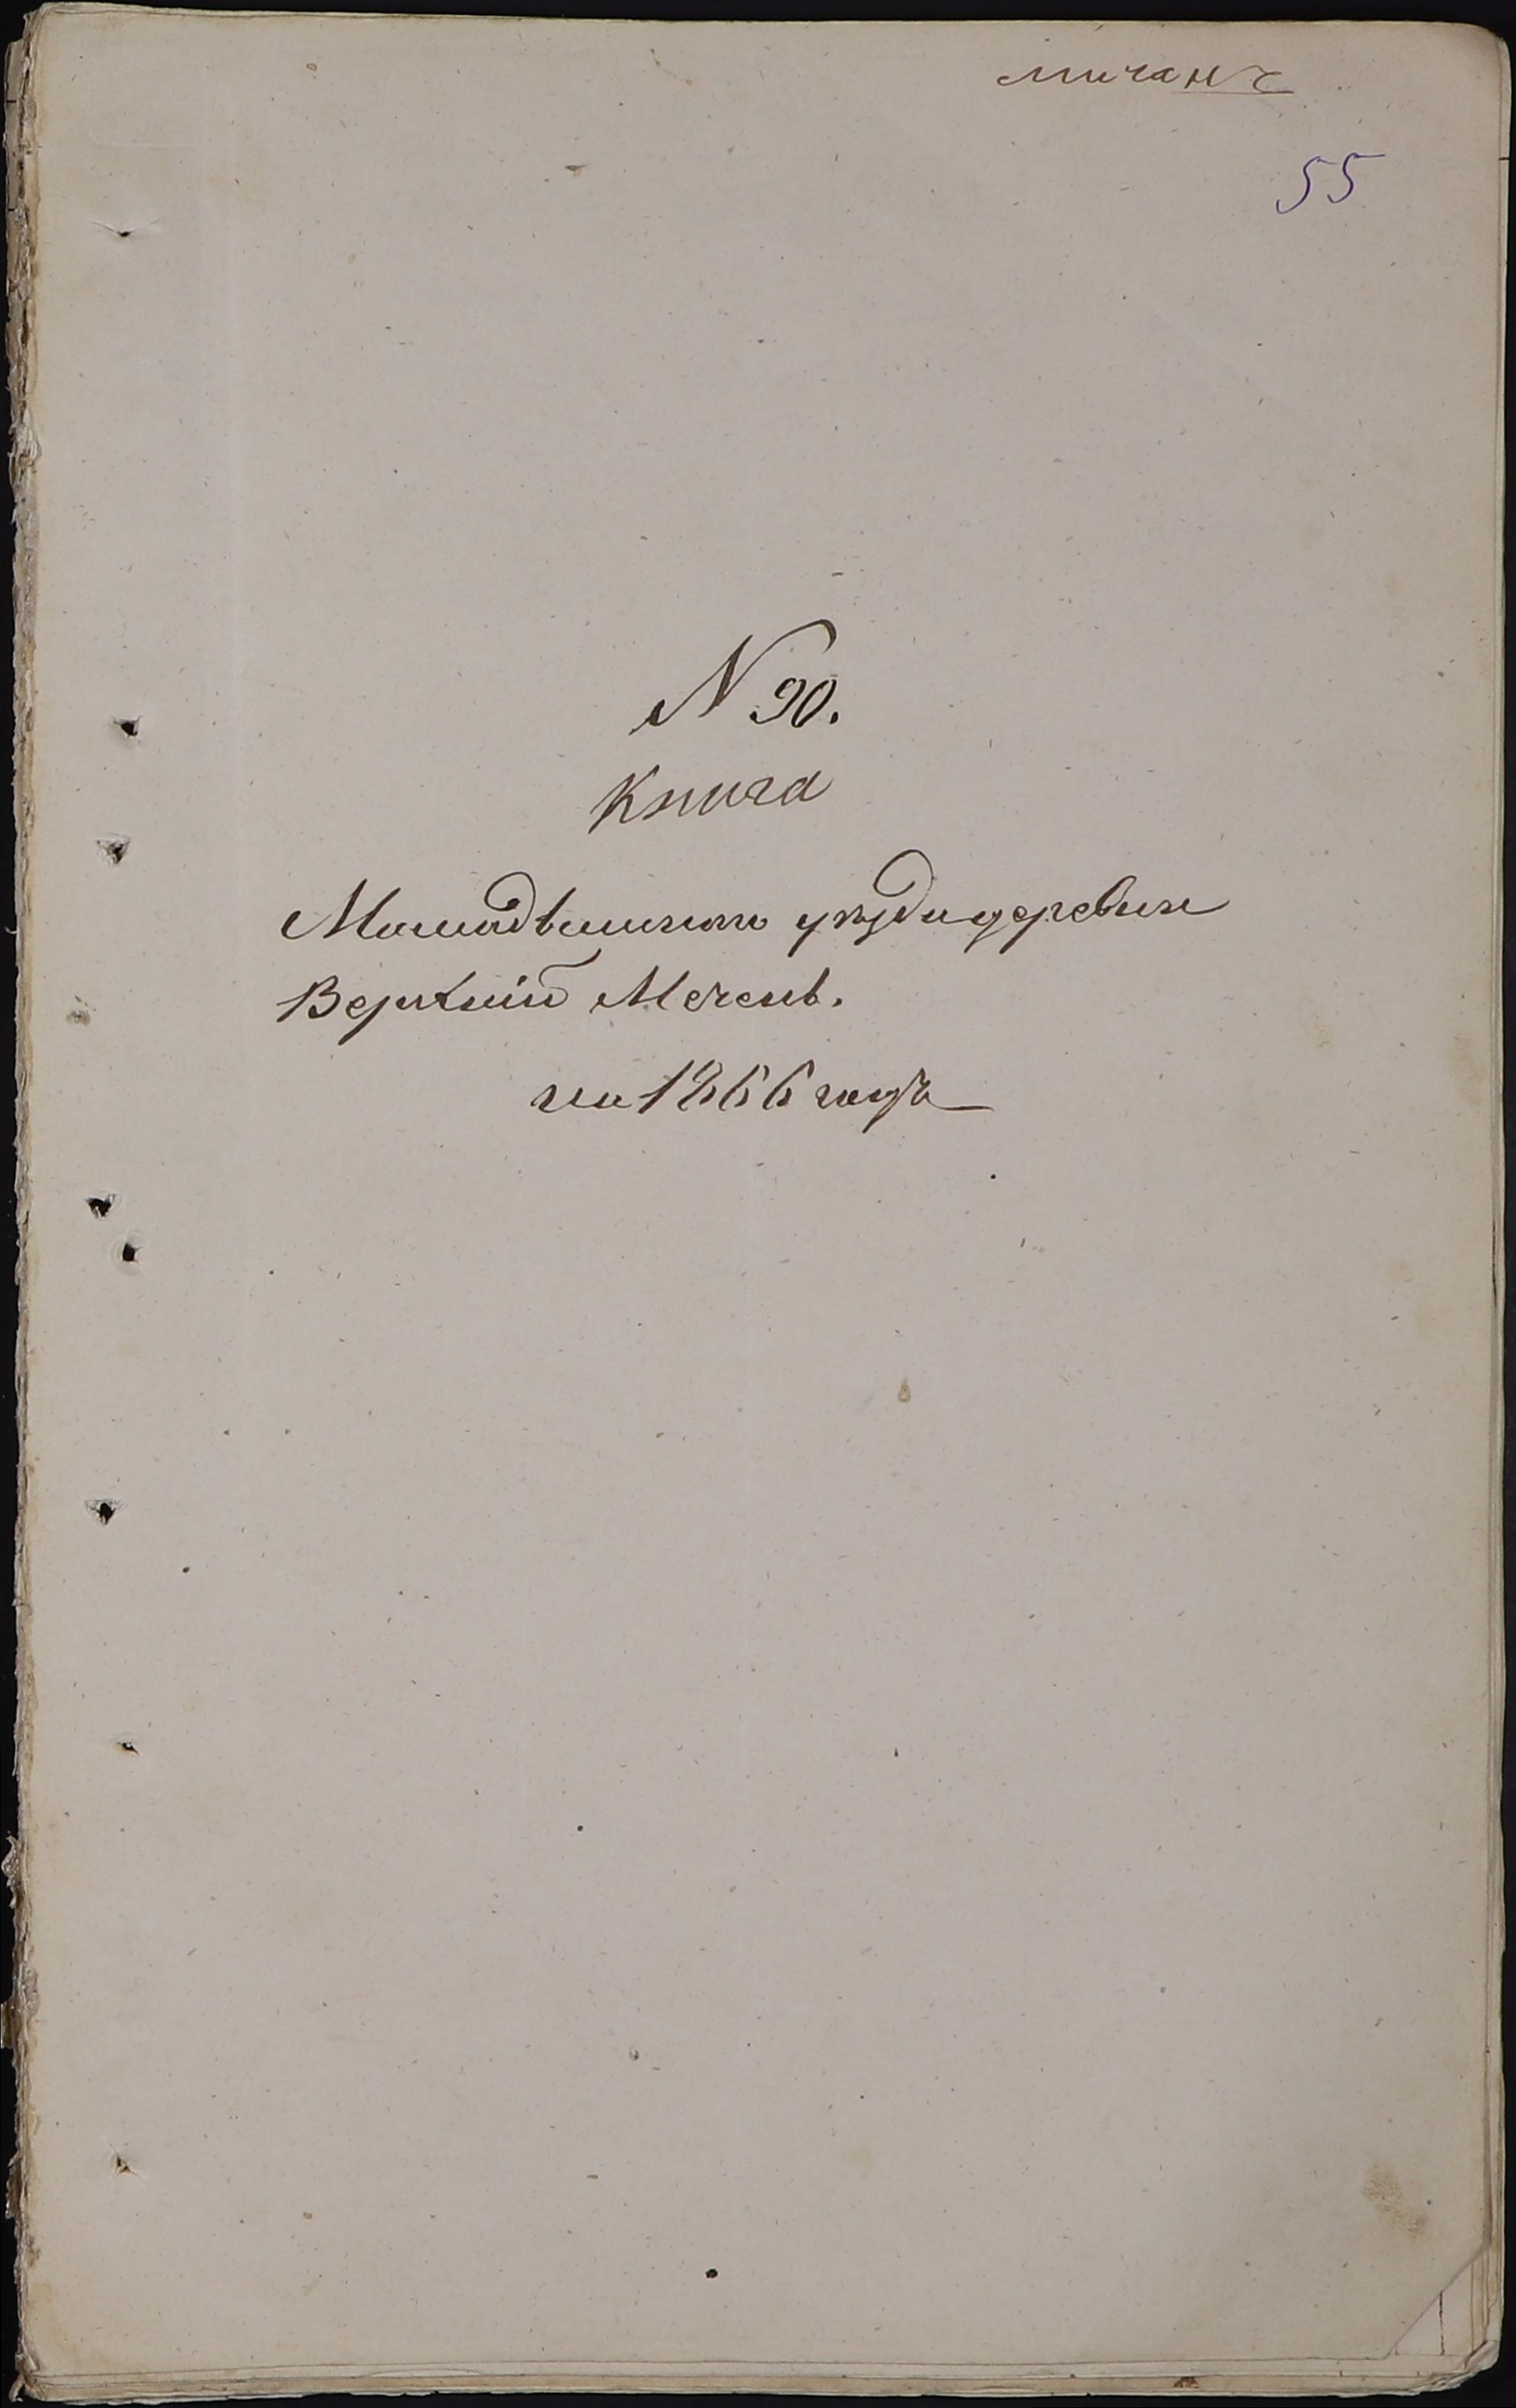 мичанъ
55
N 90.
Книга
Мамадышскаго уѣзда деревни
Верхній Меченъ.
на 1866 годъ